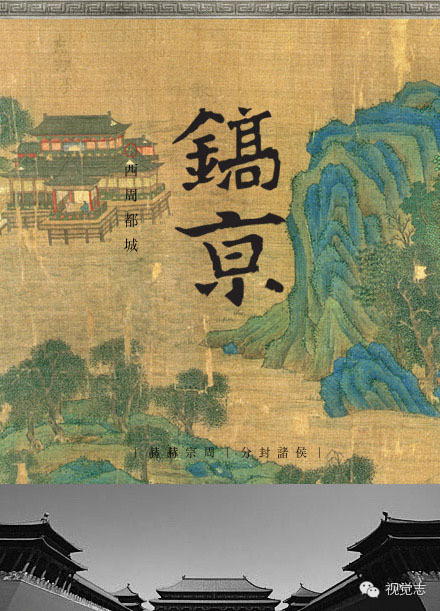 鎬京
西周都城
赫赫宗周｜分封諸侯
视觉志